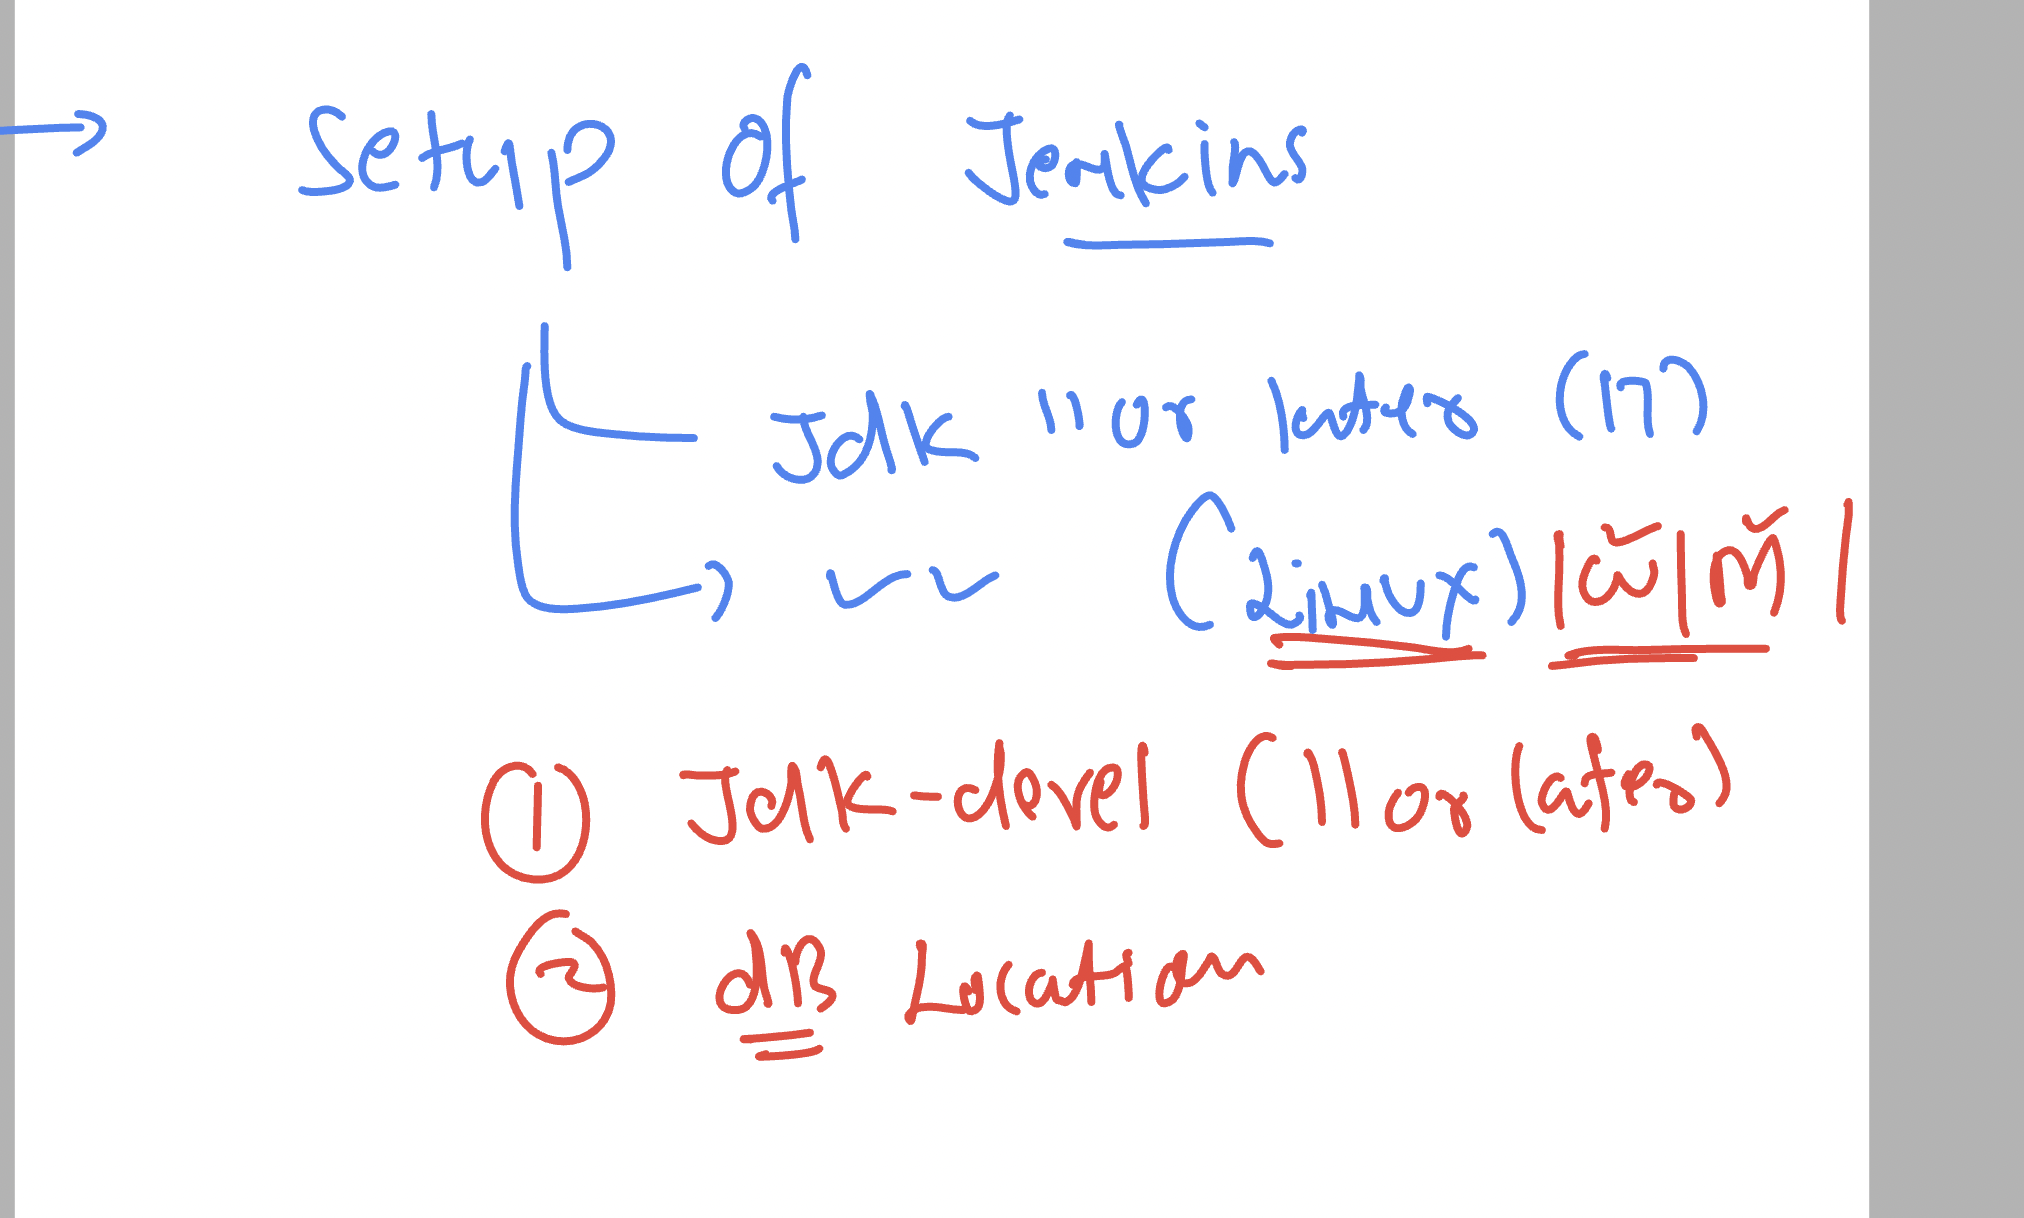 Setup of Jenkins
Jdk 11 or later (17)
(Linux) | |
① Jdk-devel (11 or later)
② dB Location